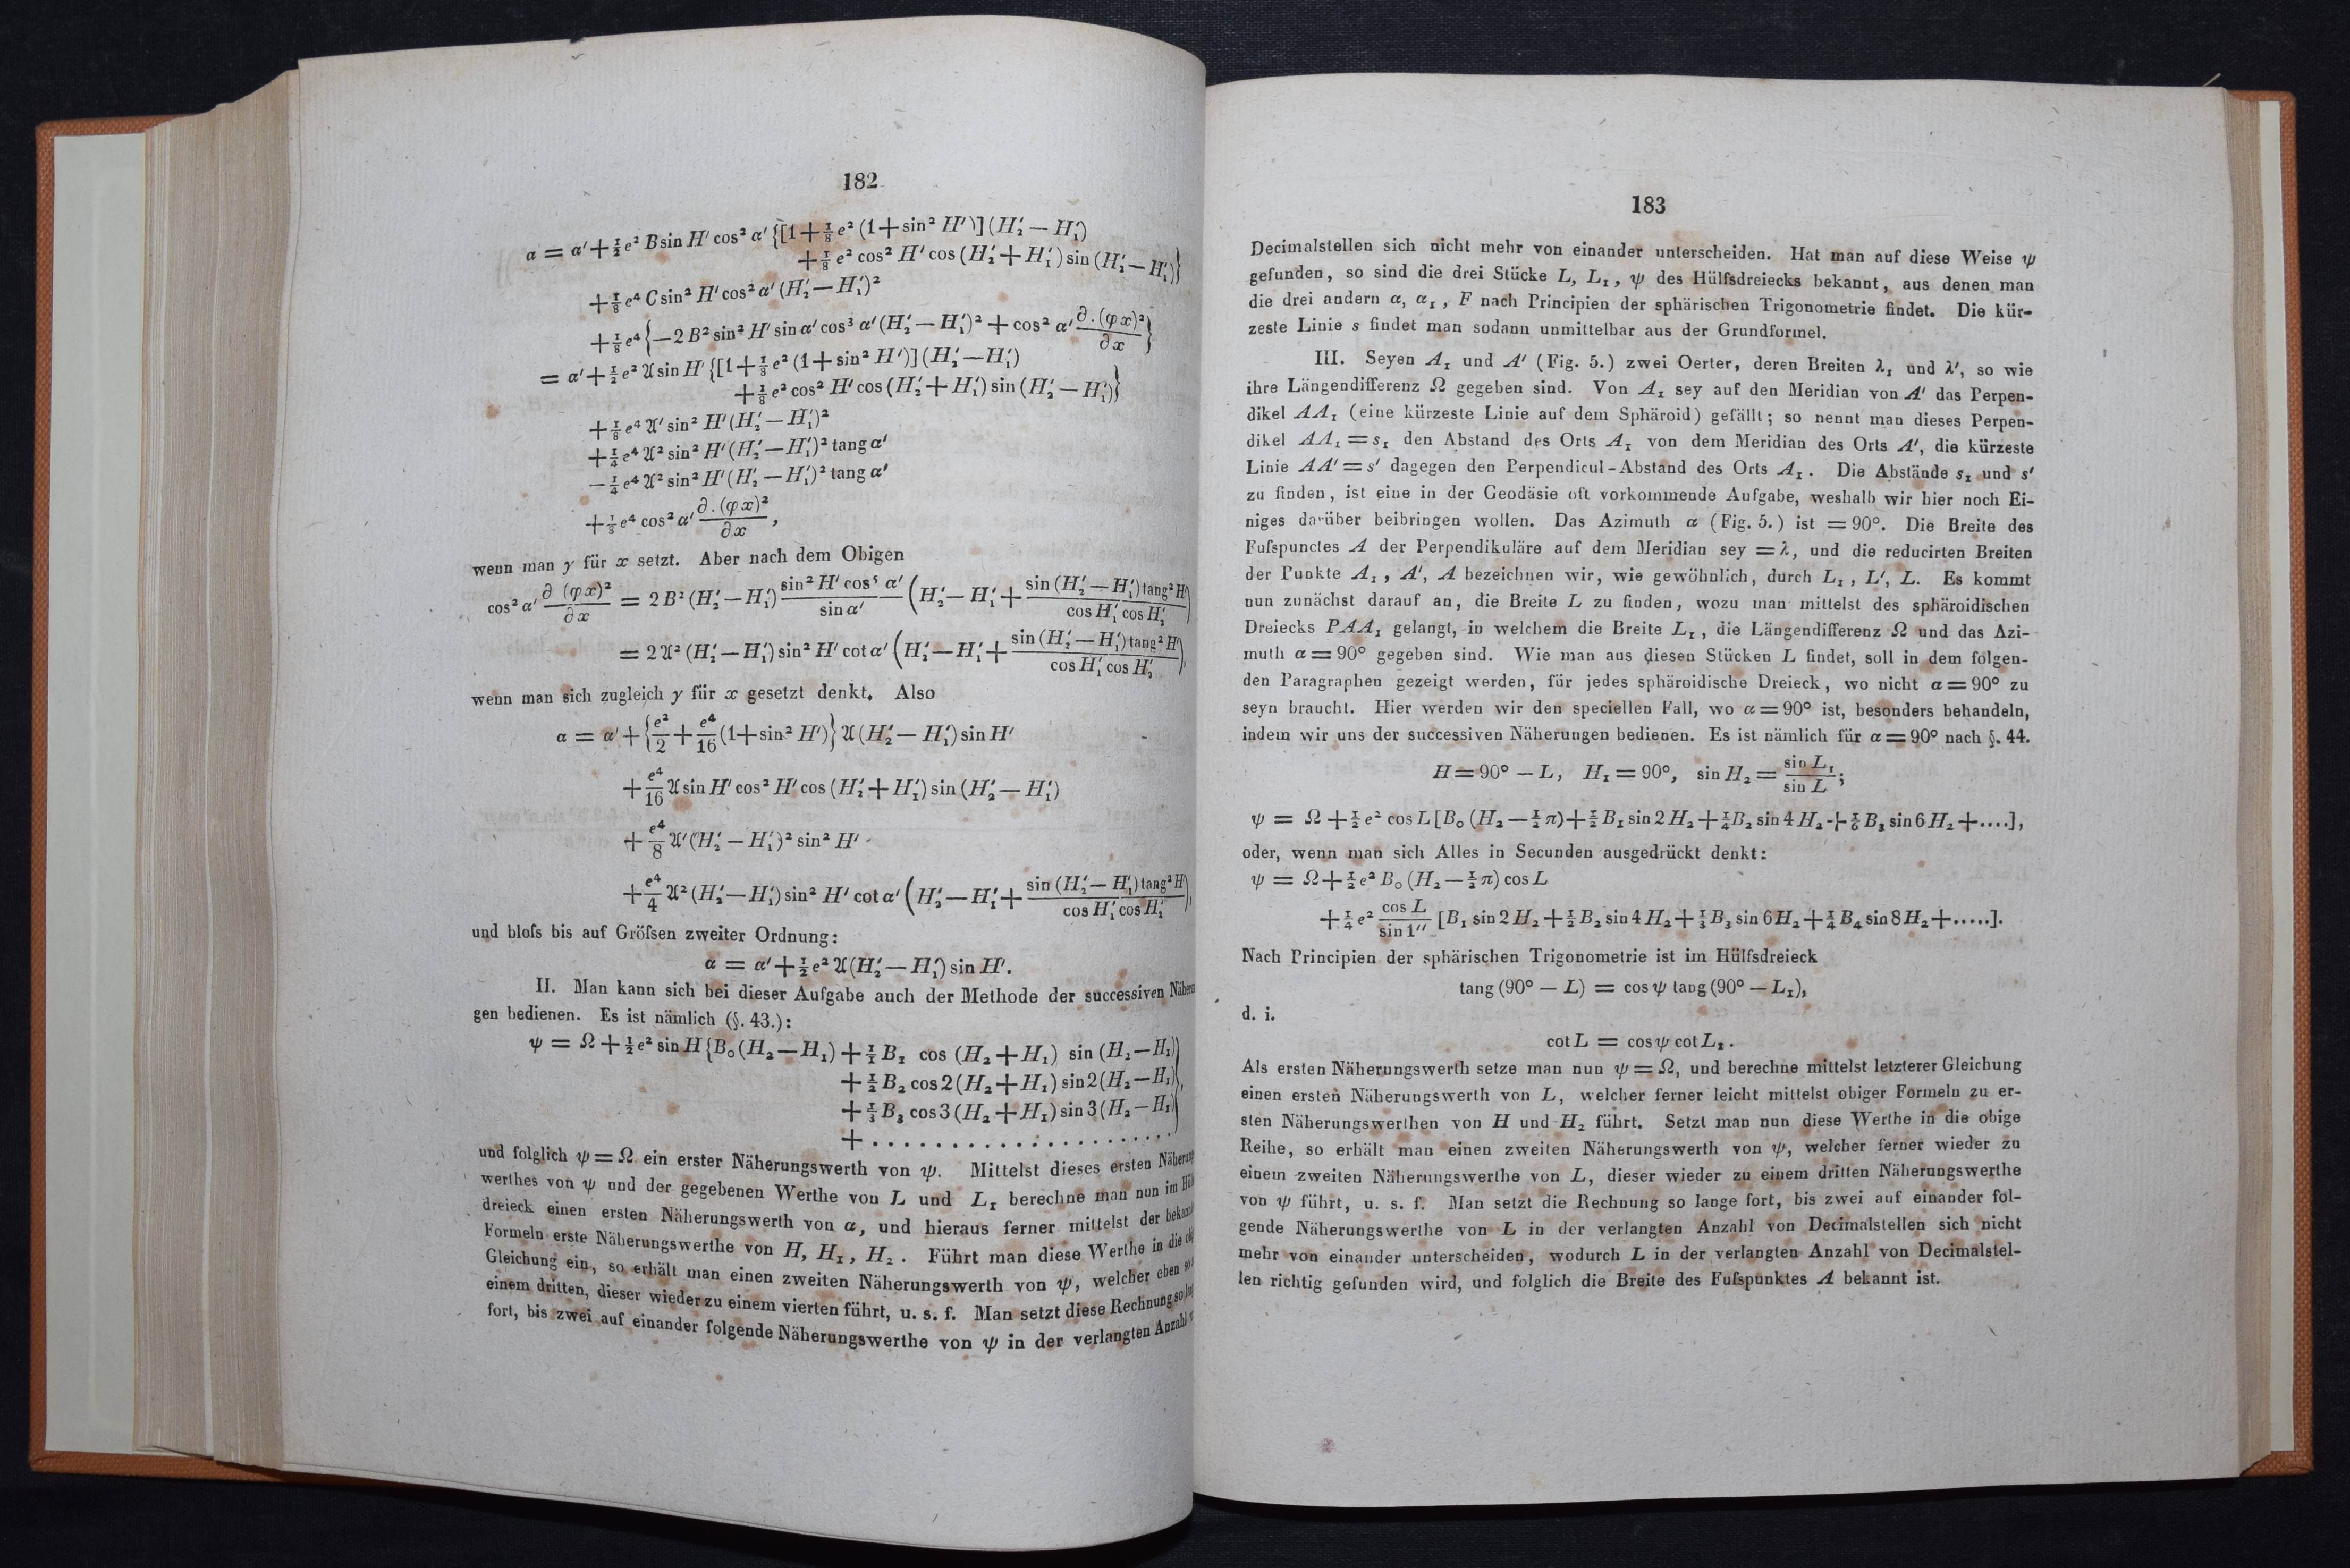 182
α = α′ + ½ e² B sin H′ cos² α′ {[1 + ⅛ e² (1 + sin² H′)] (H₂′ — H₁′)
+ ⅛ e² cos² H′ cos (H₂′ + H₁′) sin (H₂′ — H₁′)}
+ ⅛ e⁴ C sin² H′ cos² α′ (H₂′ — H₁′)²
+ ⅛ e⁴ {—2 B² sin² H′ sin α′ cos³ α′ (H₂′ — H₁′)² + cos² α′ ∂.(φx)²/∂x}
= α′ + ½ e² 𝔄 sin H′ {[1 + ⅛ e² (1 + sin² H′)] (H₂′ — H₁′)
+ ⅛ e² cos² H′ cos (H₂′ + H₁′) sin (H₂′ — H₁′)}
+ ⅛ e⁴ 𝔄′ sin² H′ (H₂′ — H₁′)²
+ ¼ e⁴ 𝔄² sin² H′ (H₂′ — H₁′)² tang α′
— ¼ e⁴ 𝔄² sin² H′ (H₂′ — H₁′)² tang α′
+ ⅛ e⁴ cos² α′ ∂.(φx)²/∂x,
wenn man y für x setzt. Aber nach dem Obigen
cos² α′ ∂ (φx)²/∂x = 2 B² (H₂′ — H₁′) sin² H′ cos⁵ α′/sin α′ (H₂′ — H₁′ + sin (H₂′ — H₁′) tang² H′/cos H₁′ cos H₂′)
= 2 𝔄² (H₂′ — H₁′) sin² H′ cot α′ (H₂′ — H₁′ + sin (H₂′ — H₁′) tang² H′/cos H₁′ cos H₂′),
wenn man sich zugleich y für x gesetzt denkt. Also
α = α′ + {e²/2 + e⁴/16 (1 + sin² H′)} 𝔄 (H₂′ — H₁′) sin H′
+ e⁴/16 𝔄 sin H′ cos² H′ cos (H₂′ + H₁′) sin (H₂′ — H₁′)
+ e⁴/8 𝔄′ (H₂′ — H₁′)² sin² H′
+ e⁴/4 𝔄² (H₂′ — H₁′) sin² H′ cot α′ (H₂′ — H₁′ + sin (H₂′ — H₁′) tang² H′/cos H₁′ cos H₂′),
und bloſs bis auf Gröſsen zweiter Ordnung:
α = α′ + ½ e² 𝔄 (H₂′ — H₁′) sin H′.
II. Man kann sich bei dieser Aufgabe auch der Methode der successiven
gen bedienen. Es ist nämlich (§. 43.):
ψ = Ω + ½ e² sin H {B₀ (H₂ — H₁) + ¹⁄₁ B₁ cos (H₂ + H₁) sin (H₂ — H₁)
+ ½ B₂ cos 2 (H₂ + H₁) sin 2 (H₂ — H₁)
+ ⅓ B₃ cos 3 (H₂ + H₁) sin 3 (H₂ — H₁)
+ . . . . . . . . . . . . . . . . . . . . .},
und folglich ψ = Ω ein erster Näherungswerth von ψ. Mittelst dieses ersten
werthes von ψ und der gegebenen Werthe von L und L₁ berechne man nun im
dreieck einen ersten Näherungswerth von α, und hieraus ferner mittelst der
Formeln erste Näherungswerthe von H, H₁, H₂. Führt man diese Werthe in die
Gleichung ein, so erhält man einen zweiten Näherungswerth von ψ, welcher eben
einem dritten, dieser wieder zu einem vierten führt, u. s. f. Man setzt diese Rechnung so
fort, bis zwei auf einander folgende Näherungswerthe von ψ in der verlangten Anzahl
183
Decimalstellen sich nicht mehr von einander unterscheiden. Hat man auf diese Weise ψ
gefunden, so sind die drei Stücke L, L₁, ψ des Hülfsdreiecks bekannt, aus denen man
die drei andern α, α₁, F nach Principien der sphärischen Trigonometrie findet. Die kür-
zeste Linie s findet man sodann unmittelbar aus der Grundformel.
III. Seyen A₁ und A′ (Fig. 5.) zwei Oerter, deren Breiten λ₁ und λ′, so wie
ihre Längendifferenz Ω gegeben sind. Von A₁ sey auf den Meridian von A′ das Perpen-
dikel AA₁ (eine kürzeste Linie auf dem Sphäroid) gefällt; so nennt man dieses Perpen-
dikel AA₁ = s₁ den Abstand des Orts A₁ von dem Meridian des Orts A′, die kürzeste
Linie AA′ = s′ dagegen den Perpendicul-Abstand des Orts A₁. Die Abstände s₁ und s′
zu finden, ist eine in der Geodäsie oft vorkommende Aufgabe, weshalb wir hier noch Ei-
niges darüber beibringen wollen. Das Azimuth α (Fig. 5.) ist = 90°. Die Breite des
Fuſspunctes A der Perpendikuläre auf dem Meridian sey = λ, und die reducirten Breiten
der Punkte A₁, A′, A bezeichnen wir, wie gewöhnlich, durch L₁, L′, L. Es kommt
nun zunächst darauf an, die Breite L zu finden, wozu man mittelst des sphäroidischen
Dreiecks PAA₁ gelangt, in welchem die Breite L₁, die Längendifferenz Ω und das Azi-
muth α = 90° gegeben sind. Wie man aus diesen Stücken L findet, soll in dem folgen-
den Paragraphen gezeigt werden, für jedes sphäroidische Dreieck, wo nicht α = 90° zu
seyn braucht. Hier werden wir den speciellen Fall, wo α = 90° ist, besonders behandeln,
indem wir uns der successiven Näherungen bedienen. Es ist nämlich für α = 90° nach §. 44.
H = 90° — L, H₁ = 90°, sin H₂ = sin L₁/sin L;
ψ = Ω + ½ e² cos L [B₀ (H₂ — ½ π) + ½ B₁ sin 2 H₂ + ¼ B₂ sin 4 H₂ + ⅙ B₃ sin 6 H₂ + ....],
oder, wenn man sich Alles in Secunden ausgedrückt denkt:
ψ = Ω + ½ e² B₀ (H₂ — ½ π) cos L
+ ¼ e² cos L/sin 1″ [B₁ sin 2 H₂ + ½ B₂ sin 4 H₂ + ⅓ B₃ sin 6 H₂ + ¼ B₄ sin 8 H₂ + .....].
Nach Principien der sphärischen Trigonometrie ist im Hülfsdreieck
tang (90° — L) = cos ψ tang (90° — L₁),
d. i.
cot L = cos ψ cot L₁.
Als ersten Näherungswerth setze man nun ψ = Ω, und berechne mittelst letzterer Gleichung
einen ersten Näherungswerth von L, welcher ferner leicht mittelst obiger Formeln zu er-
sten Näherungswerthen von H und H₂ führt. Setzt man nun diese Werthe in die obige
Reihe, so erhält man einen zweiten Näherungswerth von ψ, welcher ferner wieder zu
einem zweiten Näherungswerthe von L, dieser wieder zu einem dritten Näherungswerthe
von ψ führt, u. s. f. Man setzt die Rechnung so lange fort, bis zwei auf einander fol-
gende Näherungswerthe von L in der verlangten Anzahl von Decimalstellen sich nicht
mehr von einander unterscheiden, wodurch L in der verlangten Anzahl von Decimalstel-
len richtig gefunden wird, und folglich die Breite des Fuſspunktes A bekannt ist.